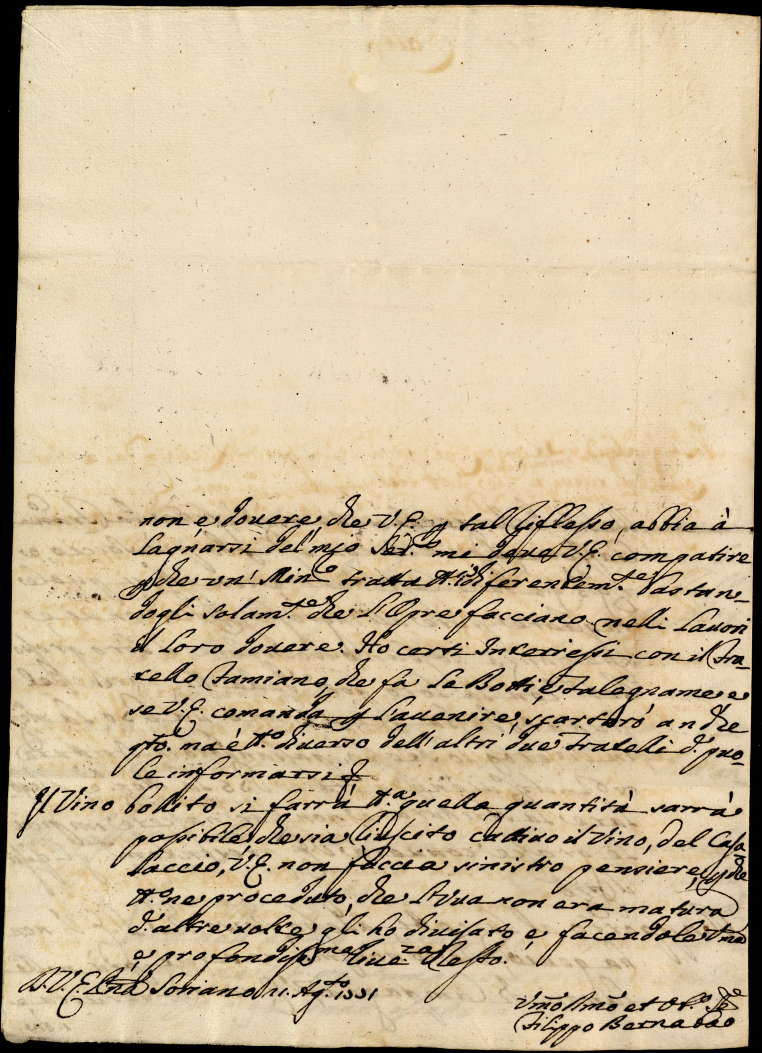 non e dovere che V.E. p tal riflesso, abbia à
Lagnarsi del mio Ser.º mi deve V.E. compatire
p che un' Min.º tratta diferentem.te bastan-
dogli solam.te che L'Opre facciano nelli Lavori
il Loro dovere. Ho certi Interressi con il fra-
tello Famiano, che fa Le Botti, e falegname e
se V.E. comanda p L'avenire, scartarò anche
q.to ma è diverso dell'altri due fratelli d. puo-
le informarsi
Il Vino bollito si farrà quella quantità sarrà
possibile, che sia riuscito cattivo il Vino, del Casa
laccio, V.E. non faccia sinistro pensiere, p che
ne proceduto, che L'Uva non era matura
d'altre volte gli ho divisato e facendole
e profondiss.ma Rive.za Resto.
D.V.E. Soriano 21. Ag.to
Filippo